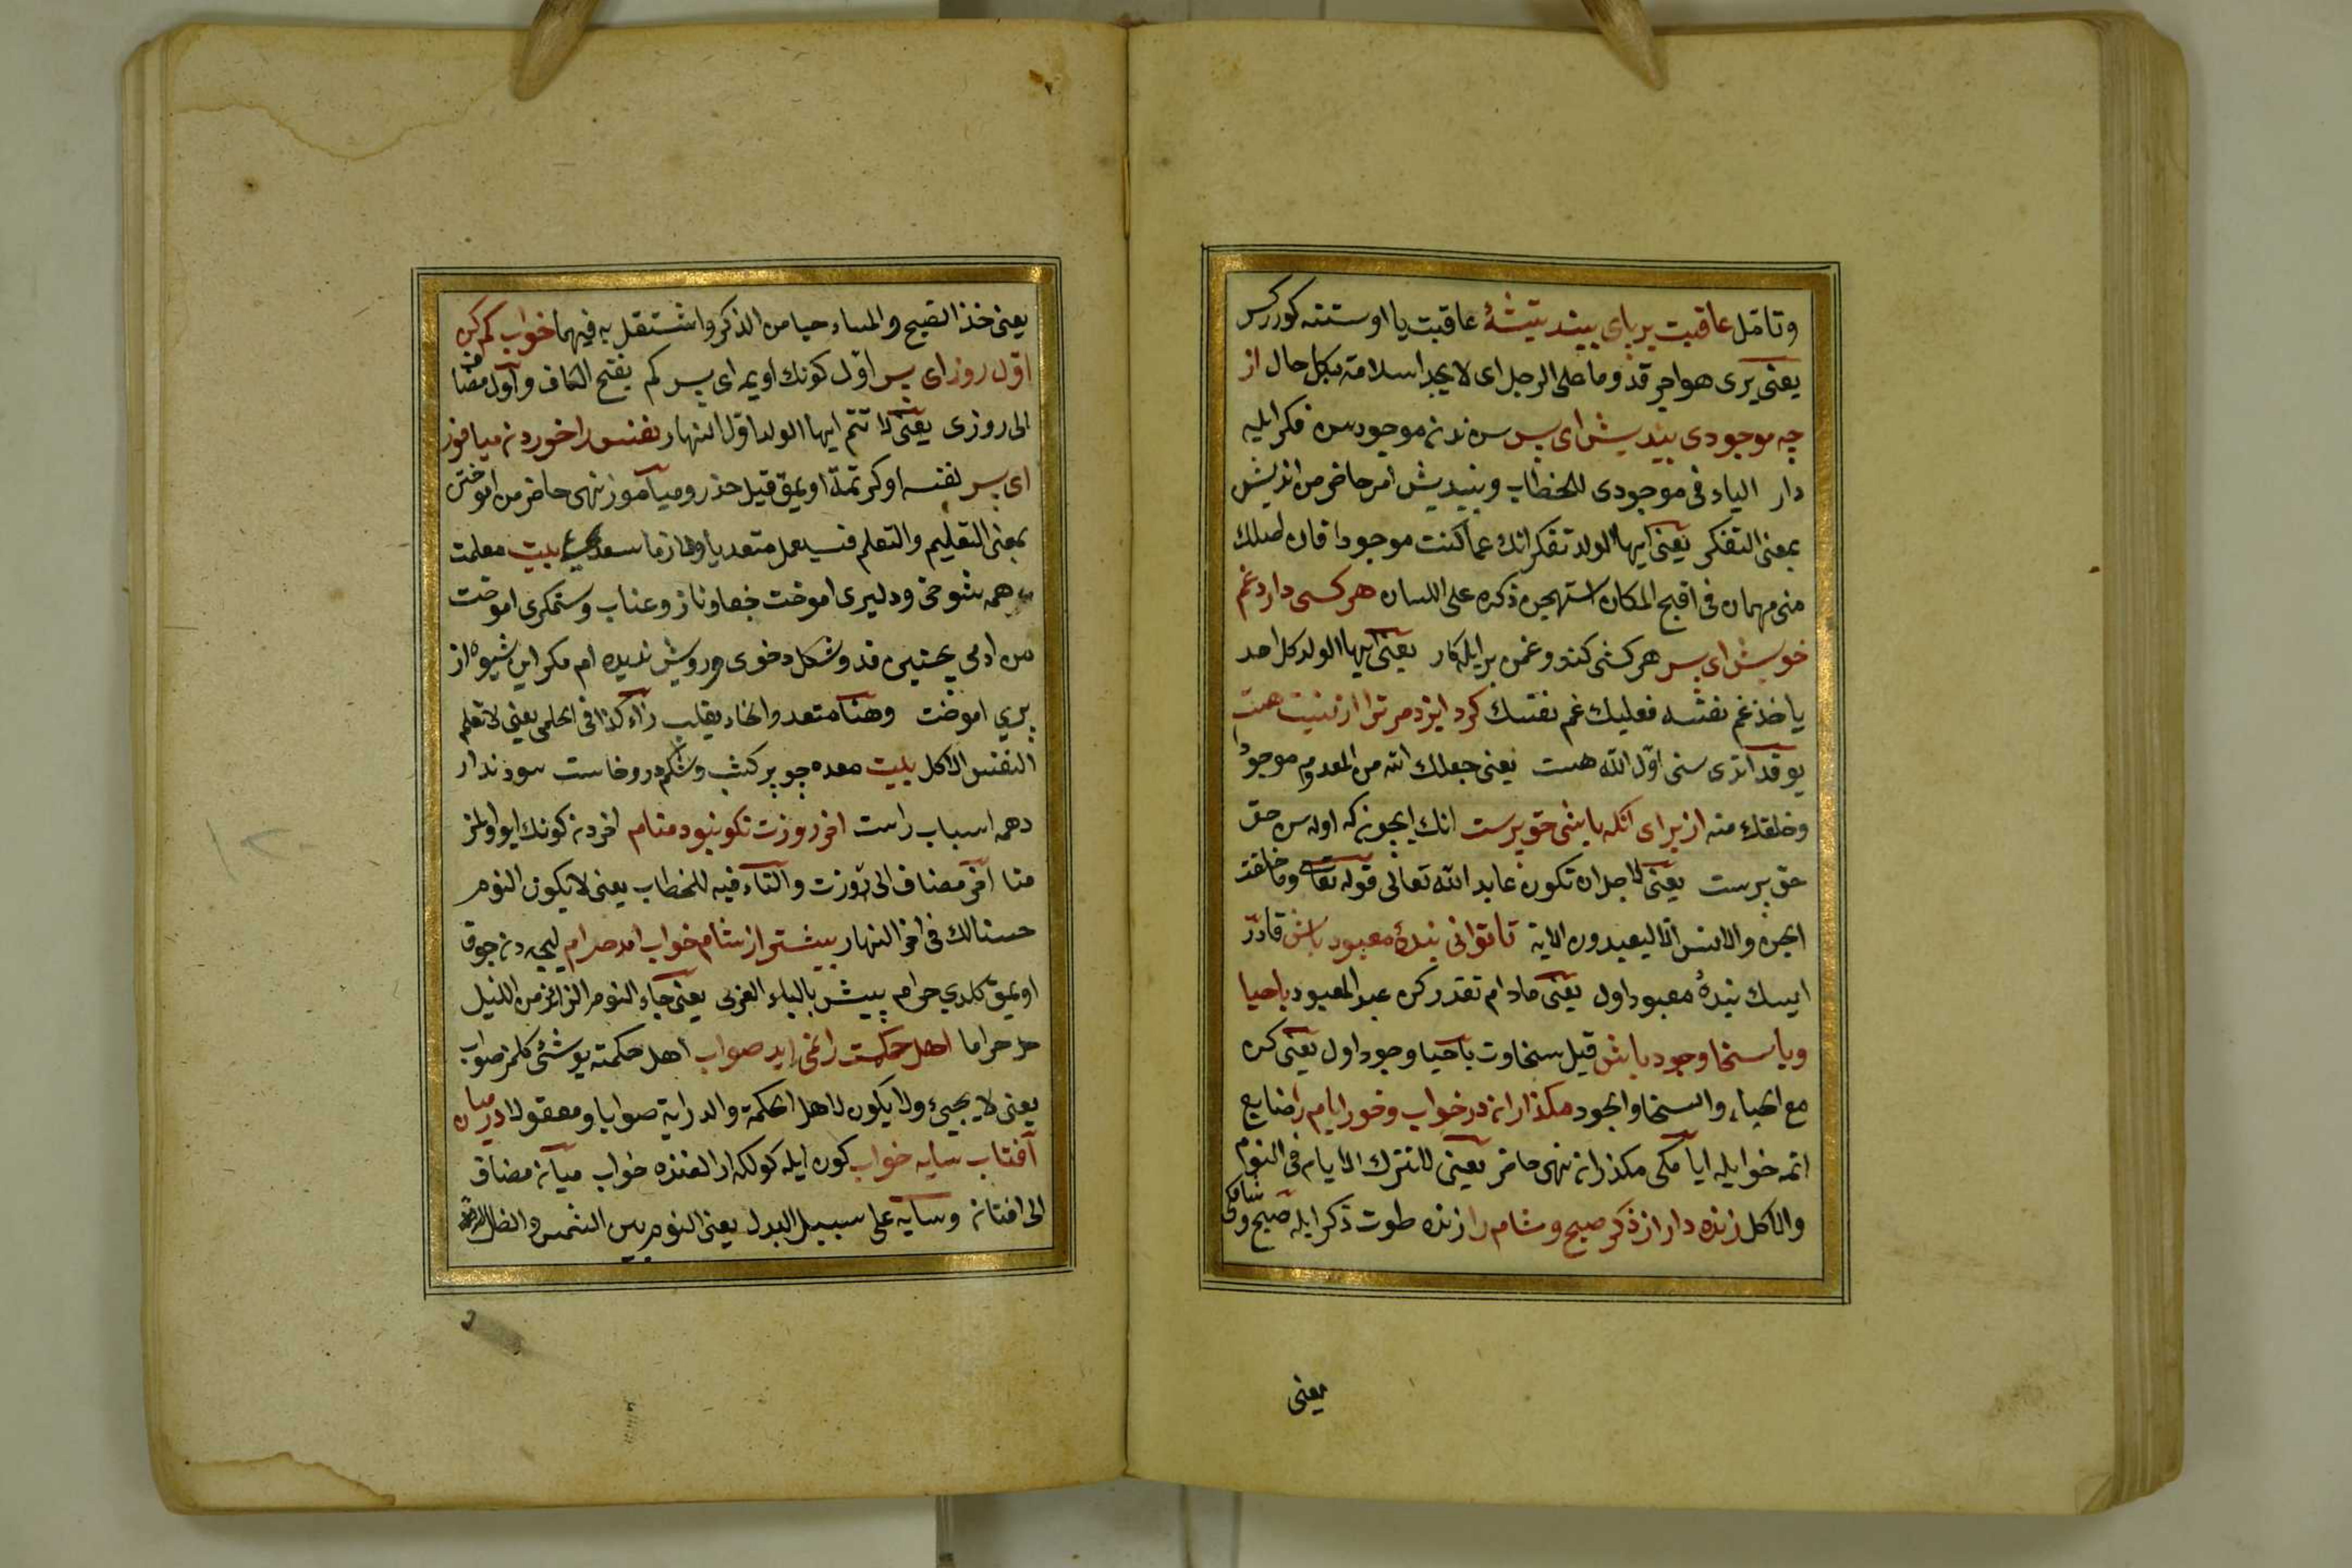 وتاٴمل عاقبت بر پای بیند تیشهٔ عاقبت یا اوستنه کورر کس
یعنی یری هواجر قد وما علی الرجل ای لا یجد اسلامة بکل حال از
چه موجودی بیندیش ای پسر سن ندن موجودسن فکر ایله
دار الیاء فی موجودی للخطاب وبیندیش امر حاضر من اندیش
بمعنی التفکر یعنی ایها الولد تفکر انک عما کنت موجودا فان اصلک
منی مهمان فی اقبح المکان استهجن ذکره علی اللسان هر کسی دارد غم
خویش ای پسر هر کشی کندو غمن بر ایله کار یعنی ایها الولد کل احد
یاخذ غم نفسه فعلیک غم نفسک کرد ایزد مر ترا از نیست هست
یوقدن اتدی سنی اول الله هست یعنی جعلک الله من المعدوم موجودا
وخلقک منه از برای آنکه باشی حق پرست انک ایچونکه اوله سن حق
حق پرست یعنی لاجل ان تکون عابد الله تعالی قوله تعالی وما خلقت
الجن والانس الا لیعبدون الایة تا توانی بندهٔ معبود باش قادر
ایسک بندهٔ معبود اول یعنی مادام تقدر کن عبد المعبود باحیا
وبا سخا وجود باش قیل سخاوت باحیا وجود اول یعنی کن
مع الحیاء والسخا والجود مکذاران در خواب وخور ایام را ضایع
اتمه خوایله ایامکی مکذران نهی حاضر یعنی لا تترک الایام فی النوم
والاکل زنده دار از ذکر صبح وشام را زنده طوت ذکر ایله صبح وشامکی
یعنی
یعنی خذ الصبح والمساء حیا من الذکر واشتغل به فیهما خواب کم کن
اول روز ای پسر اول کونک اویمه ای پسر کم بفتح الکاف واول مضاف
الی روزی یعنی لا تنم ایها الولد اول النهار نفس را خوردن میاموز
ای پسر نفسه اوکرتمه اویمق قیل حذر ومیاموز نهی حاضر من اموختن
بمعنی التعلیم والتعلم فیستعمل متعدیا ولازما سعدی بیت معلمت
همه شوخی ودلبری اموخت جفا وناز وعتاب وستمکری اموخت
من ادمی بچنین قد وشکل وخوی وروش ندیده ام مکر این شیوه از
پری اموخت وهنا متعد والخاء یقلب زاء کذا فی الحلمی یعنی لا تعلم
النفس الاکل بیت معده چو پر کشت وشکم درد خاست سود ندارد
همه اسباب راست اخر روزت نکو نبود منام اخر دن کونک ایو اولمز
منا آخر مضاف الی روزت والتاء فیه للخطاب یعنی لا یکون النوم
حسنا لک فی اخر النهار بیشتر از شام خواب امد حرام کیجه دن چوق
اویمق کلدی حرام بیش بالباء العربی یعنی جاء النوم الزائد من اللیل
حراما اهل حکمت را نمی اید صواب اهل حکمته یوشی کلمز صواب
یعنی لا یجیٔ ولا یکون لاهل الحکمة والدرایة صوابا ومعقولا در میان
آفتاب سایه خواب کون ایله کولکه ارالغنده خواب میان مضاف
الی افتان وسایه علی سبیل البدل یعنی النوم بین الشمس والظل